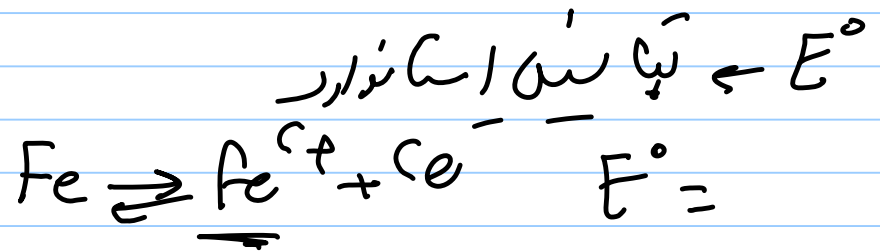 E° ← پتانسیل استاندارد
Fe ⇌ Fe²⁺ + 2e⁻ E° =